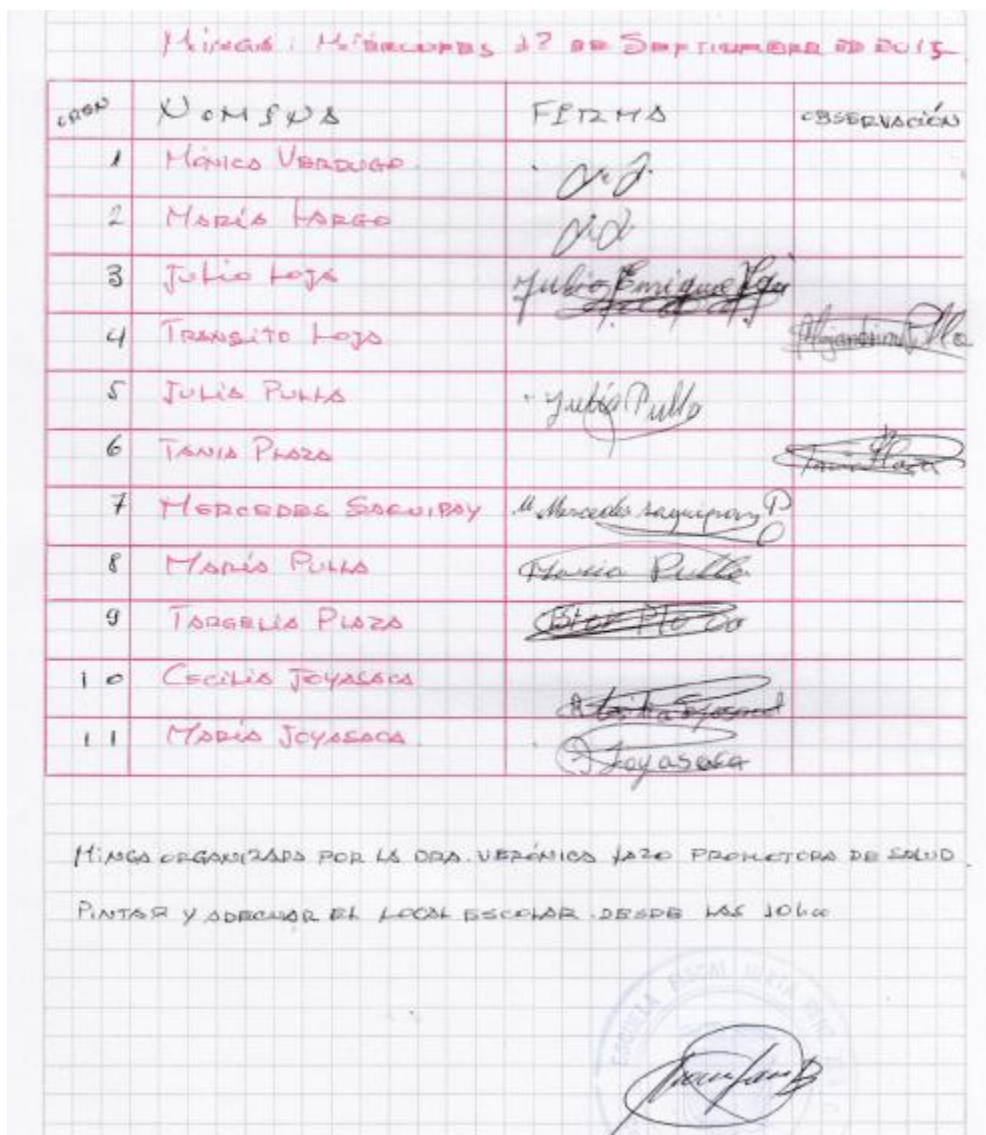 Minga: Miércoles 12 de Septiembre de 2015
ORDN NOMINA FIRMA OBSERVACIÓN
1 Mónica Verdugo
2 María Largo
3 Julio Loja Julio Enrique Loja
4 Transito Loja Alejandrina Pulla
5 Julia Pulla Julia Pulla
6 Tania Plaza Tania Plaza
7 Mercedes Saguipay M. Mercedes Saguipay P
8 María Pulla Maria Pulla
9 Targelia Plaza
10 Cecilia Joyasaca
11 María Joyasaca Joyasaca
Minga organizada por la Dra. Verónica Lazo promotora de salud.
Pintar y adecuar el local escolar desde las 10h00
ESCUELA FISCAL MIXTA